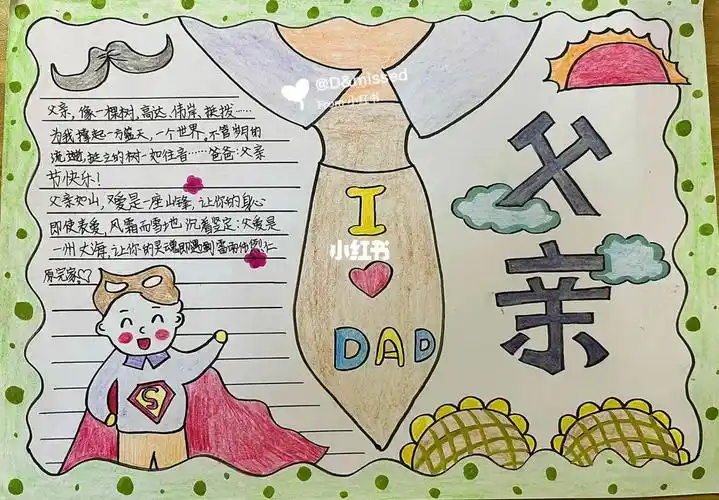 父亲,像一棵树,高达、伟岸、挺拨……
为我撑起一方蓝天,一个世界,不管岁月的
流逝,挺立的树一如往昔……爸爸:父亲
节快乐!
父亲如山,父爱是一座山锋,让你的身心
即使表爱,风霜雨雪地沉着坚定;父爱是
一州大海,让你的灵魂即遇到雷雨
I
DAD
父
亲
S
@D&missed
From 小红书
小红书